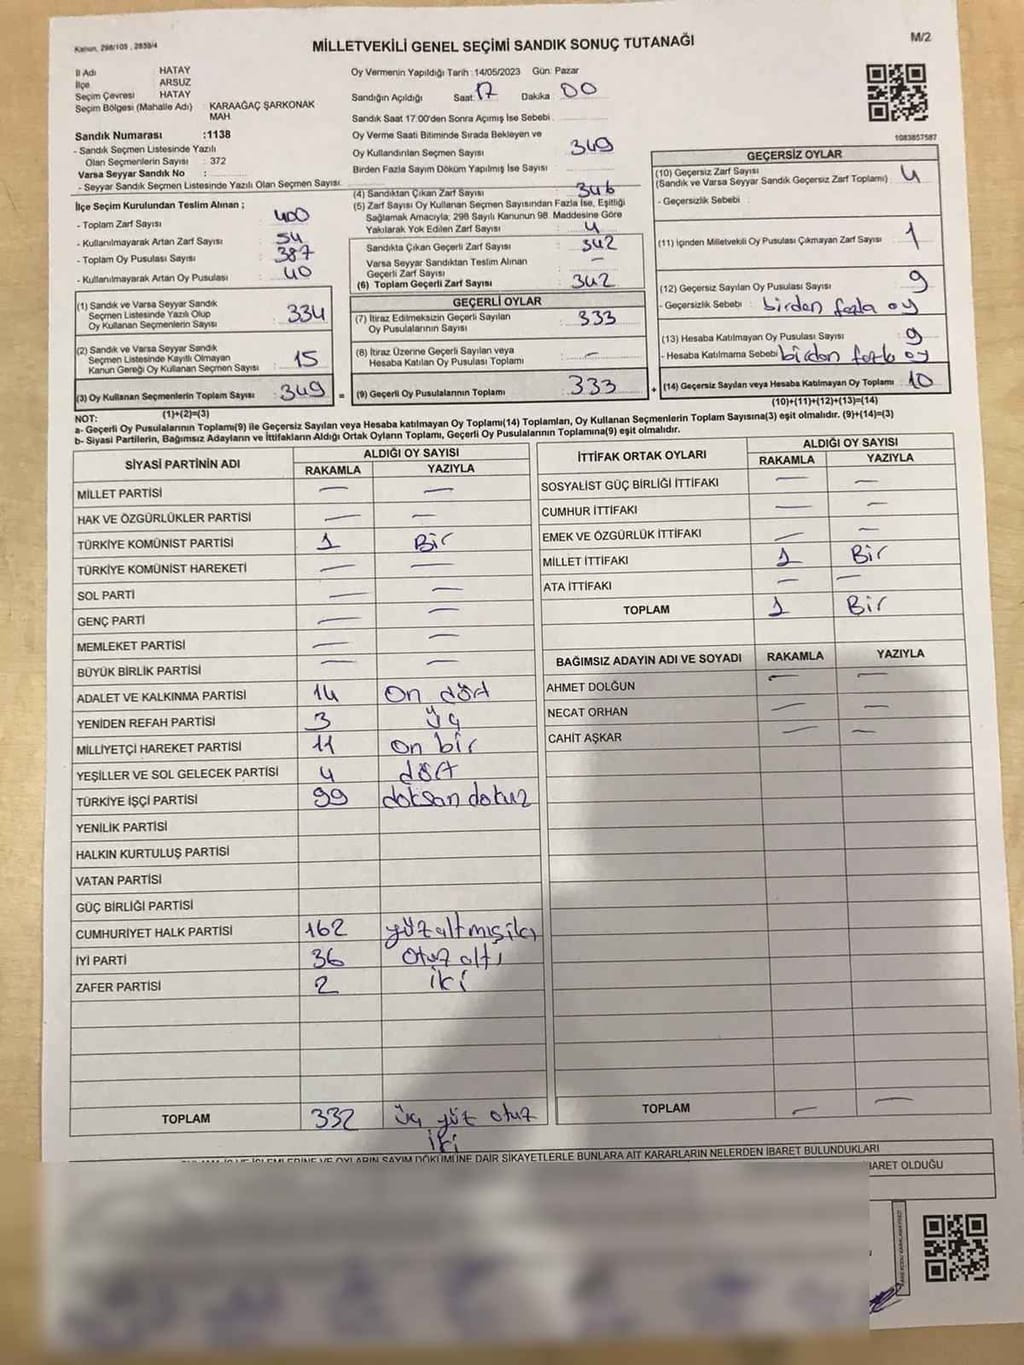 Kanun, 298/105 , 2839/4
MİLLETVEKİLİ GENEL SEÇİMİ SANDIK SONUÇ TUTANAĞI
M/2
İl Adı HATAY
İlçe ARSUZ
Seçim Çevresi HATAY
Seçim Bölgesi (Mahalle Adı) : KARAAĞAÇ ŞARKONAK MAH
Sandık Numarası :1138
- Sandık Seçmen Listesinde Yazılı
Olan Seçmenlerin Sayısı : 372
Varsa Seyyar Sandık No :
- Seyyar Sandık Seçmen Listesinde Yazılı Olan Seçmen Sayısı:
Oy Vermenin Yapıldığı Tarih :14/05/2023 Gün: Pazar
Sandığın Açıldığı Saat: 17 Dakika 00
Sandık Saat 17:00'den Sonra Açımış İse Sebebi :
Oy Verme Saati Bitiminde Sırada Bekleyen ve
Oy Kullandırılan Seçmen Sayısı 349
Birden Fazla Sayım Döküm Yapılmış İse Sayısı
1083857587
İlçe Seçim Kurulundan Teslim Alınan ;
- Toplam Zarf Sayısı : 400
- Kullanılmayarak Artan Zarf Sayısı : 54
- Toplam Oy Pusulası Sayısı : 387
- Kullanılmayarak Artan Oy Pusulası : 40
(1) Sandık ve Varsa Seyyar Sandık
Seçmen Listesinde Yazılı Olup
Oy Kullanan Seçmenlerin Sayısı : 334
(2) Sandık ve Varsa Seyyar Sandık
Seçmen Listesinde Kayıtlı Olmayan
Kanun Gereği Oy Kullanan Seçmen Sayısı : 15
(3) Oy Kullanan Seçmenlerin Toplam Sayısı : 349
(1)+(2)=(3)
(4) Sandıktan Çıkan Zarf Sayısı : 346
(5) Zarf Sayısı Oy Kullanan Seçmen Sayısından Fazla İse, Eşitliği
Sağlamak Amacıyla; 298 Sayılı Kanunun 98. Maddesine Göre
Yakılarak Yok Edilen Zarf Sayısı : 4
Sandıkta Çıkan Geçerli Zarf Sayısı : 342
Varsa Seyyar Sandıktan Teslim Alınan
Geçerli Zarf Sayısı : —
(6) Toplam Geçerli Zarf Sayısı : 342
GEÇERLİ OYLAR
(7) İtiraz Edilmeksizin Geçerli Sayılan
Oy Pusulalarının Sayısı : 333
(8) İtiraz Üzerine Geçerli Sayılan veya
Hesaba Katılan Oy Pusulası Toplamı : —
= (9) Geçerli Oy Pusulalarının Toplamı : 333 +
GEÇERSİZ OYLAR
(10) Geçersiz Zarf Sayısı
(Sandık ve Varsa Seyyar Sandık Geçersiz Zarf Toplamı) : 4
- Geçersizlik Sebebi :
(11) İçinden Milletvekili Oy Pusulası Çıkmayan Zarf Sayısı : 1
(12) Geçersiz Sayılan Oy Pusulası Sayısı : 9
- Geçersizlik Sebebi : birden fazla oy
(13) Hesaba Katılmayan Oy Pusulası Sayısı : 9
- Hesaba Katılmama Sebebi : birden fazla oy
(14) Geçersiz Sayılan veya Hesaba Katılmayan Oy Toplamı : 10
(10)+(11)+(12)+(13)=(14)
NOT:
a- Geçerli Oy Pusulalarının Toplamı(9) ile Geçersiz Sayılan veya Hesaba katılmayan Oy Toplamı(14) Toplamları, Oy Kullanan Seçmenlerin Toplam Sayısına(3) eşit olmalıdır. (9)+(14)=(3)
b- Siyasi Partilerin, Bağımsız Adayların ve İttifakların Aldığı Ortak Oyların Toplamı, Geçerli Oy Pusulalarının Toplamına(9) eşit olmalıdır.
SİYASİ PARTİNİN ADI ALDIĞI OY SAYISI
RAKAMLA YAZIYLA
MİLLET PARTİSİ — —
HAK VE ÖZGÜRLÜKLER PARTİSİ — —
TÜRKİYE KOMÜNİST PARTİSİ 1 Bir
TÜRKİYE KOMÜNİST HAREKETİ — —
SOL PARTİ — —
GENÇ PARTİ — —
MEMLEKET PARTİSİ — —
BÜYÜK BİRLİK PARTİSİ — —
ADALET VE KALKINMA PARTİSİ 14 On dört
YENİDEN REFAH PARTİSİ 3 üç
MİLLİYETÇİ HAREKET PARTİSİ 11 on bir
YEŞİLLER VE SOL GELECEK PARTİSİ 4 dört
TÜRKİYE İŞÇİ PARTİSİ 99 doksan dokuz
YENİLİK PARTİSİ
HALKIN KURTULUŞ PARTİSİ
VATAN PARTİSİ
GÜÇ BİRLİĞİ PARTİSİ
CUMHURİYET HALK PARTİSİ 162 yüz altmış iki
İYİ PARTİ 36 otuz altı
ZAFER PARTİSİ 2 iki
TOPLAM 332 üç yüz otuz
iki
İTTİFAK ORTAK OYLARI ALDIĞI OY SAYISI
RAKAMLA YAZIYLA
SOSYALİST GÜÇ BİRLİĞİ İTTİFAKI — —
CUMHUR İTTİFAKI — —
EMEK VE ÖZGÜRLÜK İTTİFAKI — —
MİLLET İTTİFAKI 1 Bir
ATA İTTİFAKI — —
TOPLAM 1 Bir
BAĞIMSIZ ADAYIN ADI VE SOYADI RAKAMLA YAZIYLA
AHMET DOLĞUN — —
NECAT ORHAN — —
CAHİT AŞKAR — —
TOPLAM — —
SAYIM DÖKÜMÜNE DAİR ŞİKAYETLERLE BUNLARA AİT KARARLARIN NELERDEN İBARET BULUNDUKLARI
BARET OLDUĞU